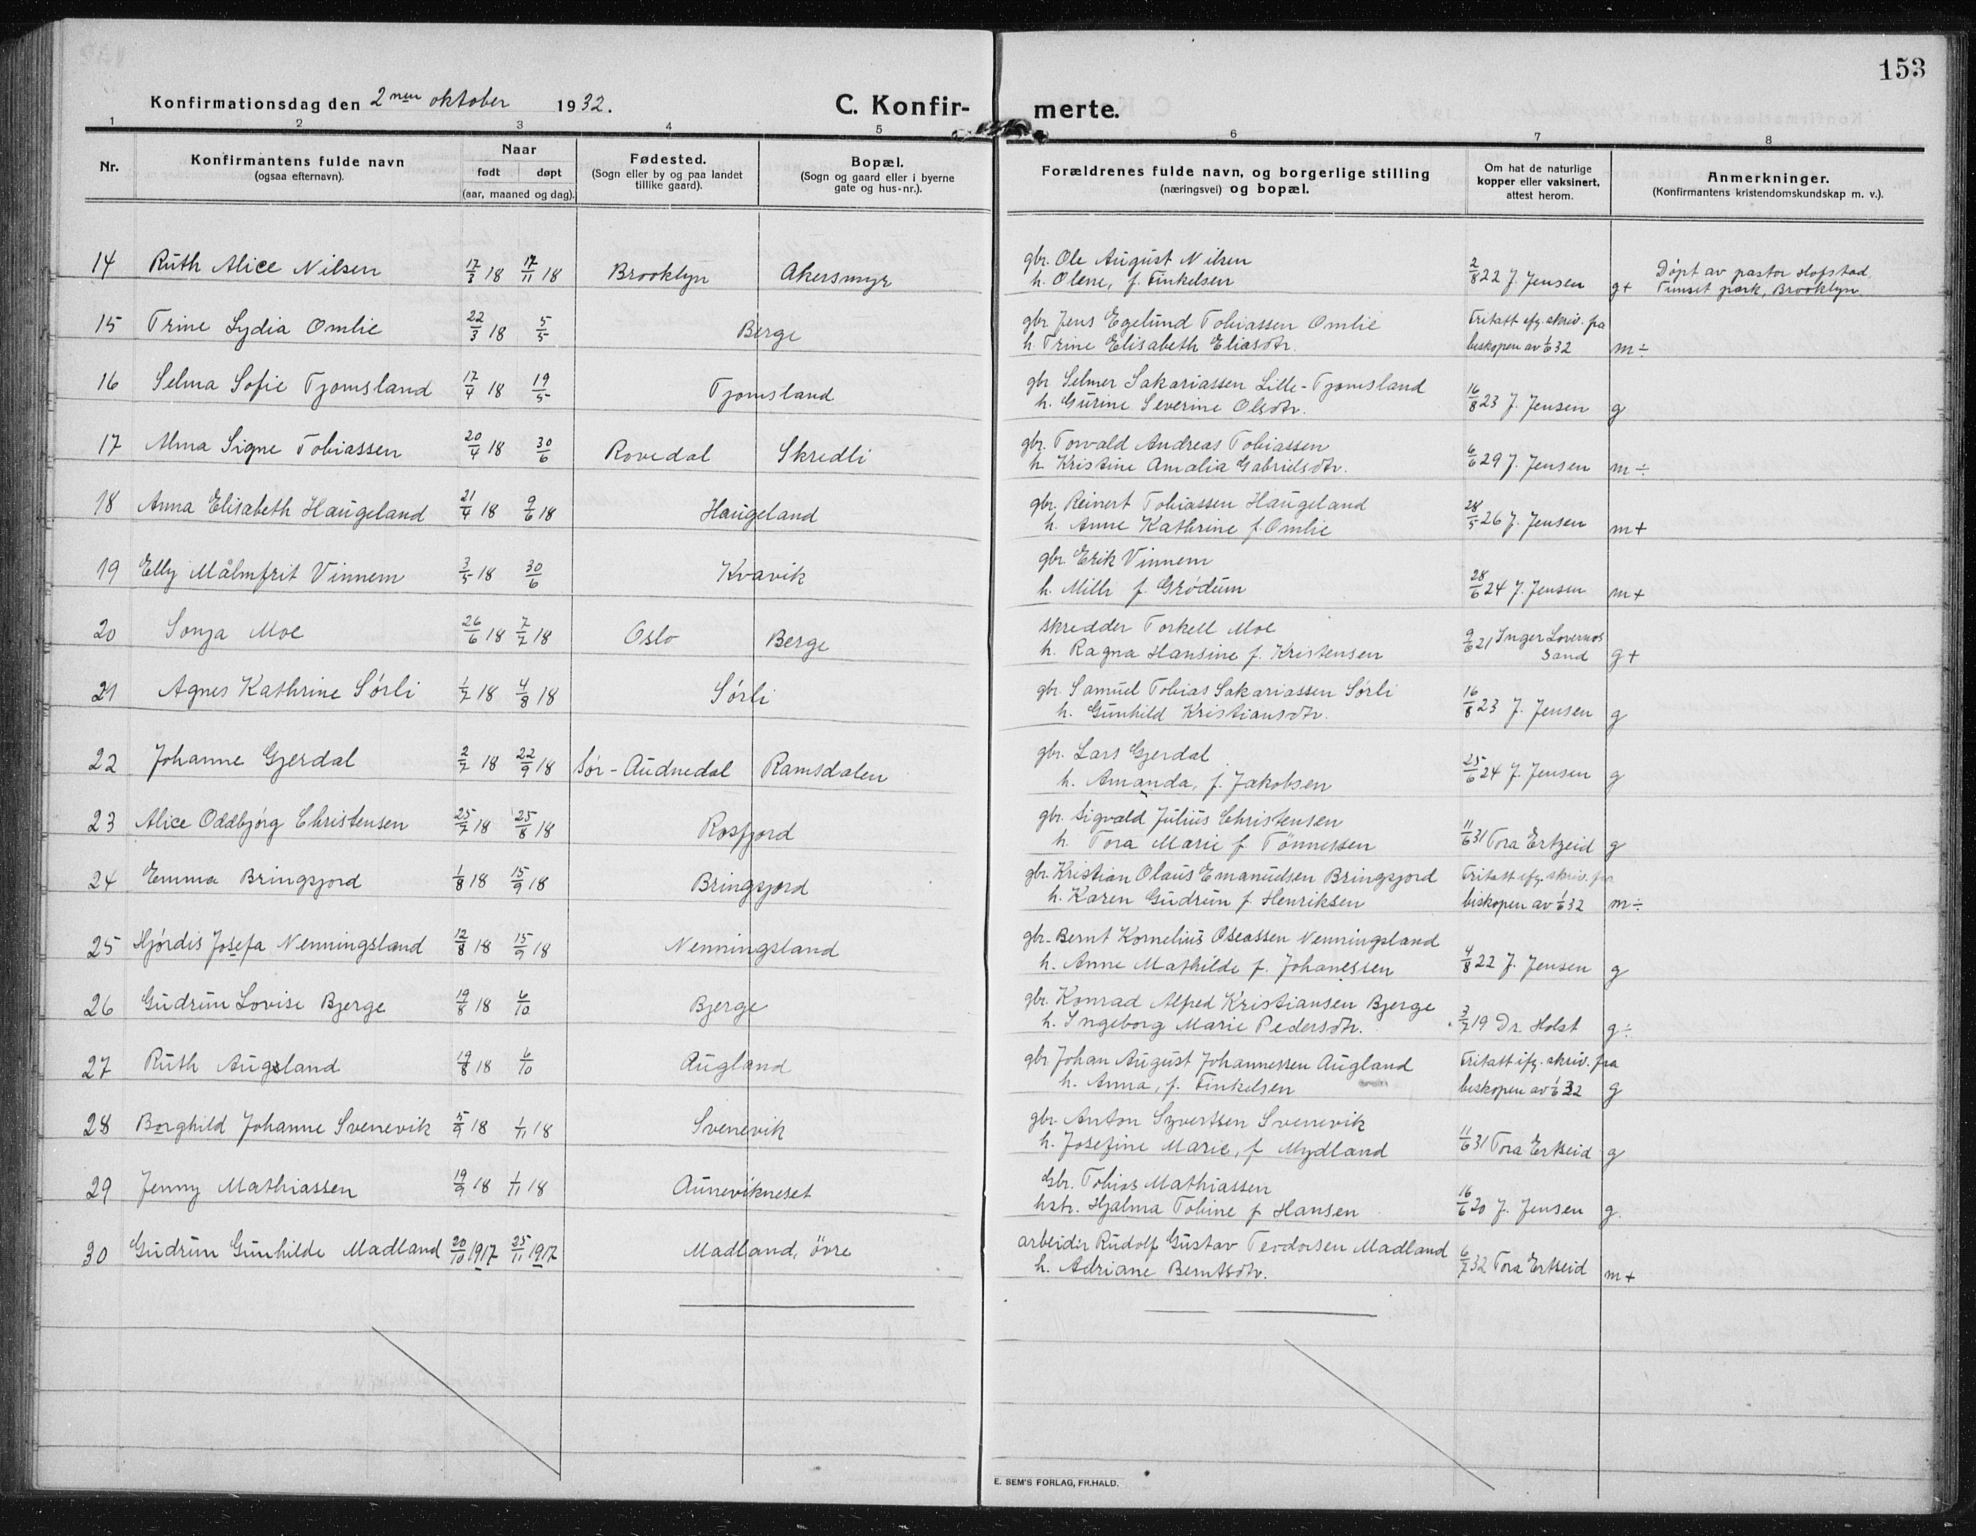 153
Konfirmationsdag den 2nen oktober 1932.
C. Konfir- merte.
1 2 3 4 5 6 7 8
Nr.
Konfirmantens fulde navn
(ogsaa efternavn).
Naar
født døpt
(aar, maaned og dag).
Fødested.
(Sogn eller by og paa landet
tillike gaard).
Bopæl.
(Sogn og gaard eller i byerne
gate og hus-nr.).
Forældrenes fulde navn, og borgerlige stilling
(næringsvei) og bopæl.
Om hat de naturlige
kopper eller vaksinert,
attest herom.
Anmerkninger.
(Konfirmantens kristendomskundskap m. v.).
14 Ruth Alice Nilsen 17/3 18 17/11 18 Brooklyn Akersmyr
gbr. Ole August Nilsen
h. Olene, f. Finkelsen 2/8 22 J. Jensen g+
Döpt av pastor Hofstad
Tunset park, Brooklyn.
15 Trine Lydia Omlie 22/3 18 5/5 Berge
gbr Jens Egelund Tobiassen Omlie
h. Trine Elisabeth Eliasdtr.
Fritatt efg. skriv. fra
biskopen av 1/6 32 m÷
16 Selma Sofie Tjomsland 17/4 18 19/5 Tjomsland
gbr Selmer Sakariassen Lille-Tjomsland
h. Gurine Severine Olsdtr. 16/8 23 J. Jensen g
17 Alma Signe Tobiassen 20/4 18 30/6 Rovedal Skredli
gbr. Torvald Andreas Tobiassen
h. Kristine Amalia Gabrielsdtr. 6/6 29 J. Jensen m÷
18 Anna Elisabeth Haugeland 21/4 18 9/6 18 Haugeland
gbr. Reinert Tobiassen Haugeland
h. Anne Kathrine f Omlie 28/5 26 J. Jensen m+
19 Elly Målmfrit Vinnem 3/5 18 30/6 Kvavik
gbr. Erik Vinnem
h. Milli f. Grödum 28/6 24 J. Jensen m+
20 Sonja Moe 26/6 18 7/7 18 Oslo Berge
skredder Torkell Moe
h. Ragna Hansine f. Kristensen 9/6 21 Inger
Sand g+
21 Agnes Kathrine Sörli 1/7 18 4/8 18 Sörli
gbr. Samuel Tobias Sakariassen Sörli
h. Gunhild Kristiansdtr. 16/8 23 J. Jensen g
22 Johanne Gjerdal 2/7 18 22/9 18 Sör-Audnedal Ramsdalen
gbr. Lars Gjerdal
h. Amanda, f. Jakobsen 25/6 24 J. Jensen g
23 Alice Oddbjörg Christensen 25/7 18 25/8 18 Rosfjord
gbr. Sigvald Julius Christensen
h. Tora Marie f Tönnessen 11/6 31 Tora Ertzeid g
24 Emma Bringsjord 1/8 18 15/9 18 Bringsjord
gbr. Kristian Olaus Emanuelsen Bringsjord
h. Karen Gudrun f Henriksen
Fritatt efg. skriv. fra
biskopen av 1/6 32 m÷
25 Hjördis Josefa Nenningsland 12/8 18 15/9 18 Nenningsland
gbr. Bernt Kornelius Oseassen Nenningsland
h. Anne Mathilde f. Johanessen 4/8 22 J. Jensen g
26 Gudrun Lovise Bjerge 19/8 18 6/10 Bjerge
gbr. Konrad Alfred Kristiansen Bjerge
h. Ingeborg Marie Pedersdtr. 3/7 19 Dr. Holst g÷
27 Ruth Augland 19/8 18 6/10 Augland
gbr Johan August Johannessen Augland
h. Anna, f. Finkelsen
Fritatt ifg. skriv. fra
biskopen av 1/6 32 g
28 Borghild Johanne Svenevik 5/9 18 1/11 18 Svenevik
gbr. Anton Syvertsen Svenevik
h. Josefine Marie, f Mydland 11/6 31 Tora Ertseid g
29 Jenny Mathiassen 19/9 18 1/11 18 Aunevikneset
Gbr. Tobias Mathiassen
hstr. Hjalma Tobine f Hansen 16/6 20 J. Jensen g.
30 Gudrun Gunhilde Madland 20/10 1917 25/11 1917 Madland, övre
arbeider Rudolf Gustav Teodorsen Madland
h. Adriane Berntsdtr. 6/7 32 Tora Ertseid m+
E. SEM'S FORLAG, FR.HALD.